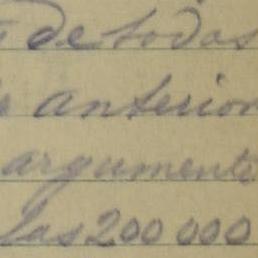 de todas
anterior
argumento
las 200 000